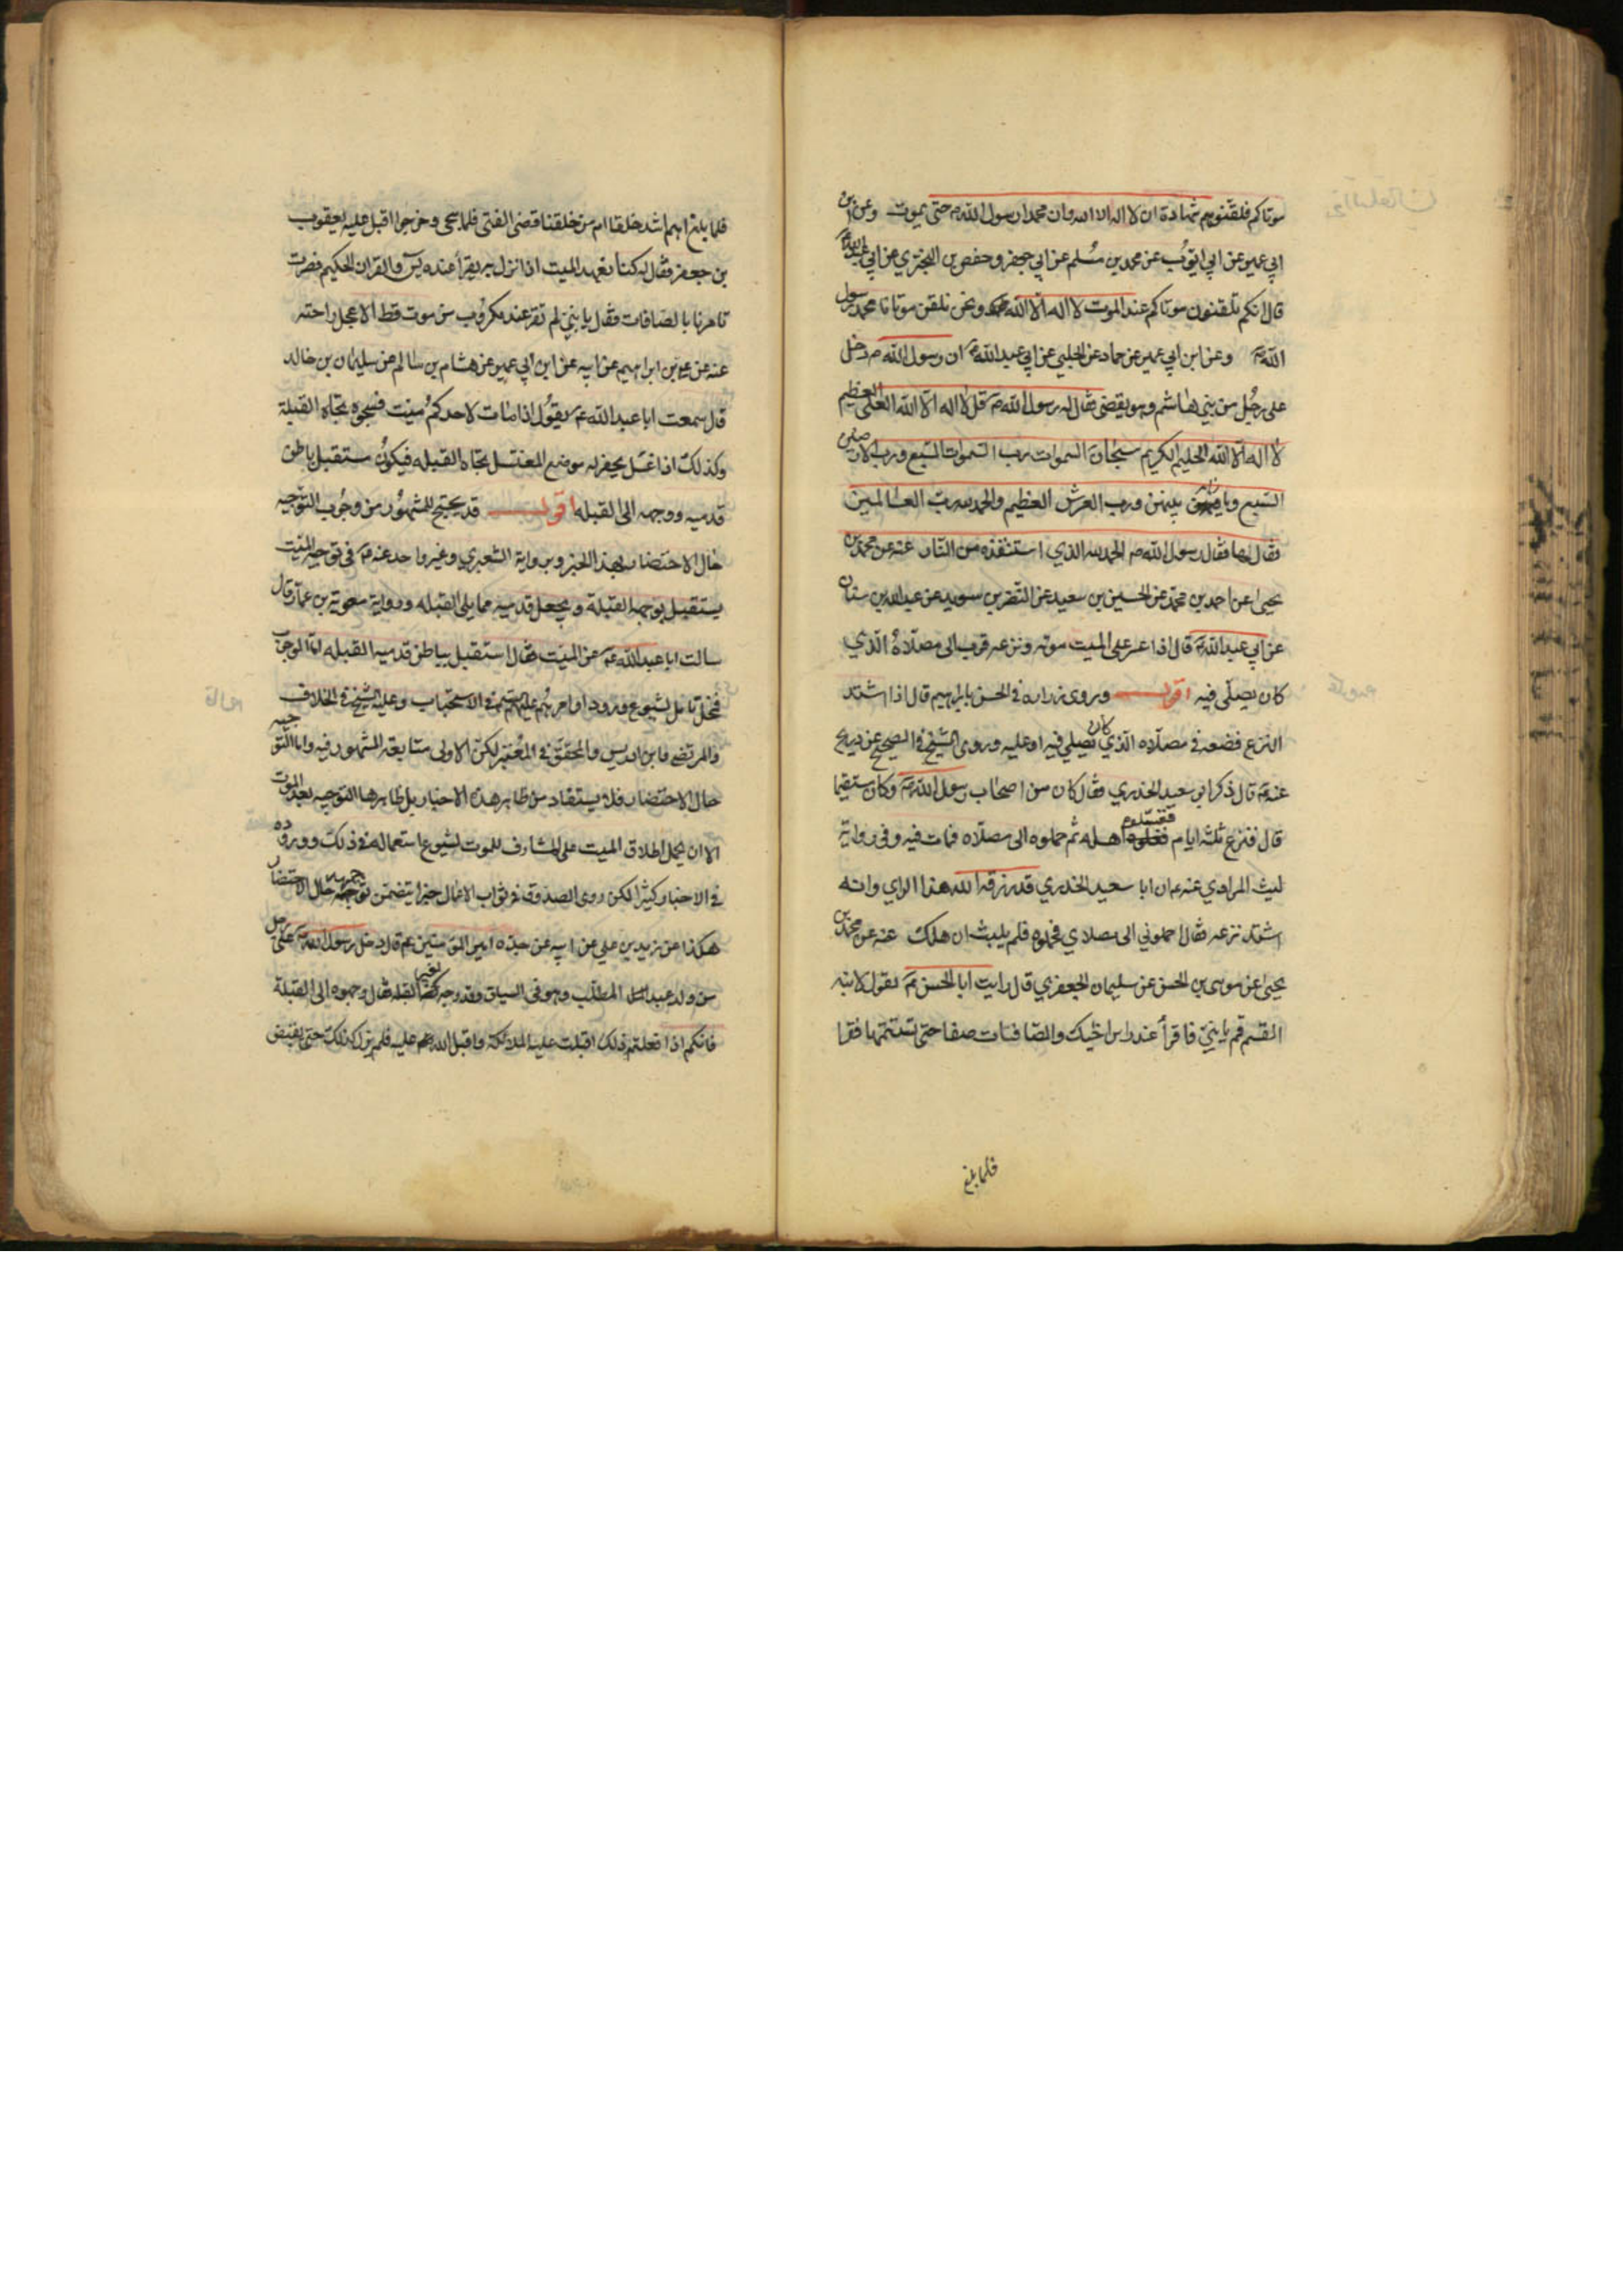 موتاكم فلقنوهم شهادة ان لا اله الا الله وان محمدا رسول الله ص حتى يموت وعن ابن
ابي عمير عن ابي ايوب عن محمد بن مسلم عن ابي جعفر وحفص بن البختري عن ابي عبد الله ع
قال انكم تلقنون موتاكم عند الموت لا اله الا الله ونحن نلقن موتانا محمد رسول
الله ص وعن ابن ابي عمير عن حماد عن الحلبي عن ابي عبد الله ع ان رسول الله ص دخل
على رجل من بني هاشم وهو يقضى فقال له رسول الله ص قل لا اله الا الله العلي العظيم
لا اله الا الله الحليم الكريم سبحان الله رب السموات السبع ورب الارضين
السبع وما بينهن ورب العرش العظيم والحمد لله رب العالمين
فقالها فقال رسول الله ص الحمد لله الذي استنقذه من النار عنه عن محمد بن
يحيى عن احمد بن محمد عن الحسين بن سعيد عن النضر بن سويد عن عبد الله بن سنان
عن ابي عبد الله ع قال اذا عسر على الميت موته ونزعه قرب الى مصلاه الذي
كان يصلي فيه اقول وروى زراره في الحسن بابراهيم قال اذا اشتد
النزع فضعه في مصلاه الذي كان يصلي فيه او عليه وروى الشيخ في الصحيح عن ذريح
عنه ع قال ذكر ابو سعيد الخدري فقال كان من اصحاب رسول الله ص وكان مستقيما
قال فنزع ثلثة ايام فغسلوه اهله ثم حملوه الى مصلاه فمات فيه وفي رواية
ليث المرادي عنه ع ان ابا سعيد الخدري قد رزقه الله هذا الراي وانه
اشتد نزعه فقال احملوني الى مصلاي فحملوه فلم يلبث ان هلك عنه عن محمد بن
يحيى عن موسى بن الحسن عن سليمان الجعفري قال رايت ابا الحسن ع يقول لابنه
القسم قم يا بني فاقرأ عند راس اخيك والصافات صفا حتى تستتمها فقرا
فلما بلغ
فلما بلغ اهم اشد خلقا ام من خلقنا قضى الفتى فلما سجي وخرجوا اقبل عليه يعقوب
بن جعفر فقال له كنا نعهد الميت اذا نزل به يقرأ عنده يس والقران الحكيم فصرت
تامرنا بالصافات فقال يا بني لم تقر عند مكروب من موت قط الا عجل راحته
عنه عن علي بن ابراهيم عن ابيه عن ابن ابي عمير عن هشام بن سالم عن سليمان بن خالد
قال سمعت ابا عبد الله ع يقول اذا مات لاحدكم ميت فسجوه تجاه القبلة
وكذلك اذا غسل يحفر له موضع المغتسل تجاه القبله فيكون مستقبل باطن
قدميه ووجهه الى القبله اقول قد يحتج للمشهور من وجوب التوجيه
حال الاحتضار بهذا الخبر وبرواية الشعيري وغير واحد عنه ع في توجيه الميت
يستقبل بوجهه القبلة ويجعل قدميه مما يلي القبله ورواية معوية بن عمار قال
سالت ابا عبد الله ع عن الميت فقال استقبل بباطن قدميه القبله اما الوجوب
فمحل تامل لشيوع ورود اوامرهم عليهم السلم في الاستحباب وعليه الشيخ في الخلاف
والمرتضى وابن ادريس والمحقق في المعتبر لكن الاولى متابعة المشهور فيه واما التوجيه
حال الاحتضار فلا يستفاد من ظاهر هذه الاخبار بل ظاهرها التوجيه بعد الموت
الا ان يحمل اطلاق الميت على المشارف للموت لشيوع استعماله في ذلك ووروده
في الاخبار كثيرا لكن روى الصدوق في ثواب الاعمال خبرا يتضمن توجيهه حال الاحتضار
هكذا عن زيد بن علي عن ابيه عن جده امير المؤمنين ع قال دخل رسول الله ص على رجل
من ولد عبد المطلب وهو في السياق وقد وجه بغير القبله فقال وجهوه الى القبلة
فانكم اذا فعلتم ذلك اقبلت عليه الملائكة واقبل الله عليه فلم يزل كذلك حتى يقبض